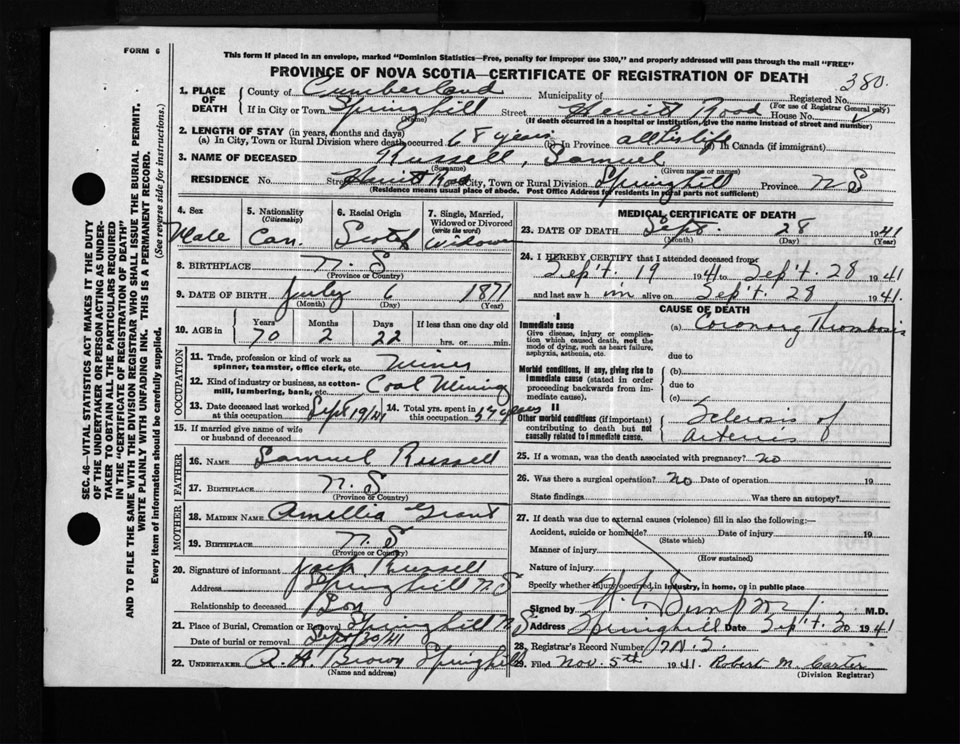 FORM 6
This form if placed in an envelope, marked "Dominion Statistics—Free, penalty for improper use $300," and properly addressed will pass through the mail "FREE"
PROVINCE OF NOVA SCOTIA—CERTIFICATE OF REGISTRATION OF DEATH
380
SEC. 46—VITAL STATISTICS ACT MAKES IT THE DUTY
OF THE UNDERTAKER OR PERSON ACTING AS UNDER-
TAKER TO OBTAIN ALL THE PARTICULARS REQUIRED
IN THE "CERTIFICATE OF REGISTRATION OF DEATH"
AND TO FILE THE SAME WITH THE DIVISION REGISTRAR WHO SHALL ISSUE THE BURIAL PERMIT.
WRITE PLAINLY WITH UNFADING INK. THIS IS A PERMANENT RECORD.
Every item of information should be carefully supplied. (See reverse side for instructions.)
1. PLACE OF DEATH
County of Cumberland Municipality of Registered No.
(For use of Registrar General only)
If in City or Town Springhill Street Road House No.
(Name) (If death occurred in a hospital or institution, give the name instead of street and number)
2. LENGTH OF STAY (in years, months and days)
(a) In City, Town or Rural Division where death occurred 68 years (b) In Province all his life (c) In Canada (if immigrant)
3. NAME OF DECEASED Russell, Samuel
(Surname) (Given name or names)
RESIDENCE No. Street Road City, Town or Rural Division Springhill Province N S
(Residence means usual place of abode. Post Office Address for residents in rural parts not sufficient)
4. Sex Male
5. Nationality (Citizenship) Can.
6. Racial Origin Scotch
7. Single, Married, Widowed or Divorced (write the word) Widower
8. BIRTHPLACE N. S
(Province or Country)
9. DATE OF BIRTH July 6 1871
(Month) (Day) (Year)
10. AGE in Years 70 Months 2 Days 22 If less than one day old hrs. or min.
OCCUPATION
11. Trade, profession or kind of work as spinner, teamster, office clerk, etc. Miner
12. Kind of industry or business, as cotton-mill, lumbering, bank, etc. Coal Mining
13. Date deceased last worked at this occupation Sept 19/41
14. Total yrs. spent in this occupation 57 years
15. If married give name of wife or husband of deceased
FATHER
16. Name Samuel Russell
17. Birthplace N. S
(Province or Country)
MOTHER
18. Maiden Name Amellia Grant
19. Birthplace N. S
(Province or Country)
20. Signature of informant Jack Russell
Address Springhill N. S
Relationship to deceased Son
21. Place of Burial, Cremation or Removal Springhill N S
Date of burial or removal Sept 30/41
22. UNDERTAKER A. H. Brown Springhill
(Name and address)
MEDICAL CERTIFICATE OF DEATH
23. DATE OF DEATH Sept. 28 1941
(Month) (Day) (Year)
24. I HEREBY CERTIFY that I attended deceased from
Sep't. 19 1941 to Sep't. 28 1941
and last saw h im alive on Sep't. 28 1941.
CAUSE OF DEATH
I
Immediate cause
Give disease, injury or complication which caused death, not the mode of dying, such as heart failure, asphyxia, asthenia, etc.
(a) Coronary Thrombosis
due to
Morbid conditions, if any, giving rise to immediate cause (stated in order proceeding backwards from immediate cause).
(b)
due to
(c)
II
Other morbid conditions (if important) contributing to death but not causally related to immediate cause.
Sclerosis of
Arteries
25. If a woman, was the death associated with pregnancy? no
26. Was there a surgical operation? No Date of operation 19
State findings Was there an autopsy?
27. If death was due to external causes (violence) fill in also the following:—
Accident, suicide or homicide? Date of injury 19
(State which)
Manner of injury
(How sustained)
Nature of injury
Specify whether injury occurred in industry, in home, or in public place
Signed by M.D.
Address Springhill Date Sep't. 30 1941
28. Registrar's Record Number
29. Filed Nov. 5th 1941. Robert M. Carter
(Division Registrar)